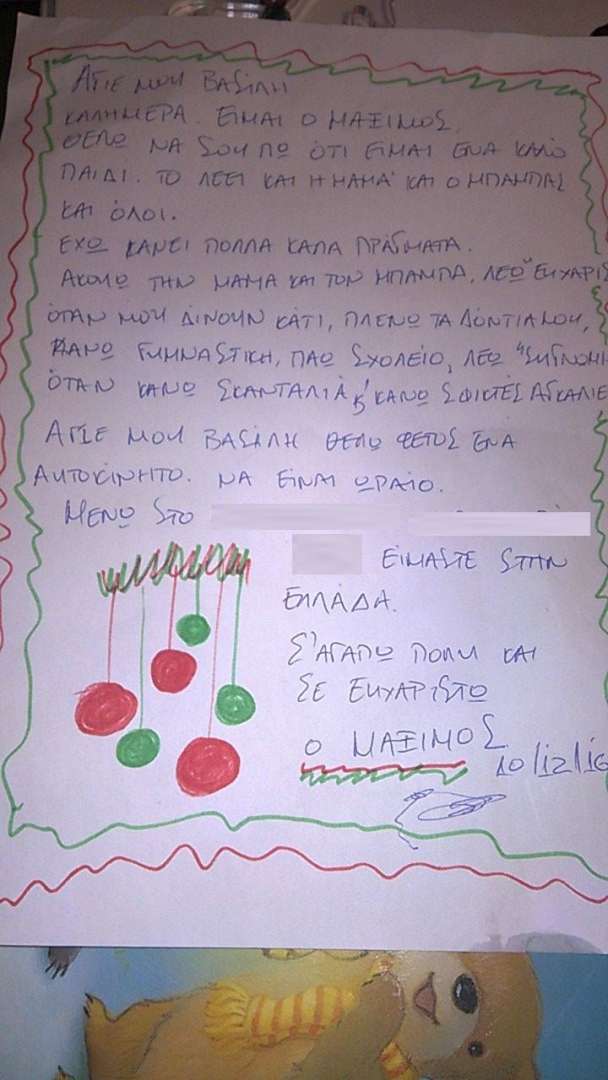 ΑΓΙΕ ΜΟΥ ΒΑΣΙΛΗ
ΚΑΛΗΜΕΡΑ. ΕΙΜΑΙ Ο ΜΑΞΙΜΟΣ.
ΘΕΛΩ ΝΑ ΣΟΥ ΠΩ ΟΤΙ ΕΙΜΑΙ ΕΝΑ ΚΑΛΟ
ΠΑΙΔΙ. ΤΟ ΛΕΕΙ ΚΑΙ Η ΜΑΜΑ ΚΑΙ Ο ΜΠΑΜΠΑΣ
ΚΑΙ ΟΛΟΙ.
ΕΧΩ ΚΑΝΕΙ ΠΟΛΛΑ ΚΑΛΑ ΠΡΑΓΜΑΤΑ.
ΑΚΟΥΩ ΤΗΝ ΜΑΜΑ ΚΑΙ ΤΟΝ ΜΠΑΜΠΑ, ΛΕΩ "ΕΥΧΑΡΙΣ
ΟΤΑΝ ΜΟΥ ΔΙΝΟΥΝ ΚΑΤΙ, ΠΛΕΝΩ ΤΑ ΔΟΝΤΙΑ ΜΟΥ,
ΚΑΝΩ ΓΥΜΝΑΣΤΙΚΗ, ΠΑΩ ΣΧΟΛΕΙΟ, ΛΕΩ "ΣΥΓΝΩΜΗ
ΌΤΑΝ ΚΑΝΩ ΣΚΑΝΤΑΛΙΑ & ΚΑΝΩ ΣΦΙΚΤΕΣ ΑΓΚΑΛΙΕ
ΑΓΙΕ ΜΟΥ ΒΑΣΙΛΗ ΘΕΛΩ ΦΕΤΟΣ ΕΝΑ
ΑΥΤΟΚΙΝΗΤΟ. ΝΑ ΕΙΝΑΙ ΩΡΑΙΟ.
ΜΕΝΩ ΣΤΟ
ΕΙΜΑΣΤΕ ΣΤΗΝ
ΕΛΛΑΔΑ.
Σ'ΑΓΑΠΩ ΠΟΛΥ ΚΑΙ
ΣΕ ΕΥΧΑΡΙΣΤΩ
Ο ΜΑΞΙΜΟΣ
10/12/16